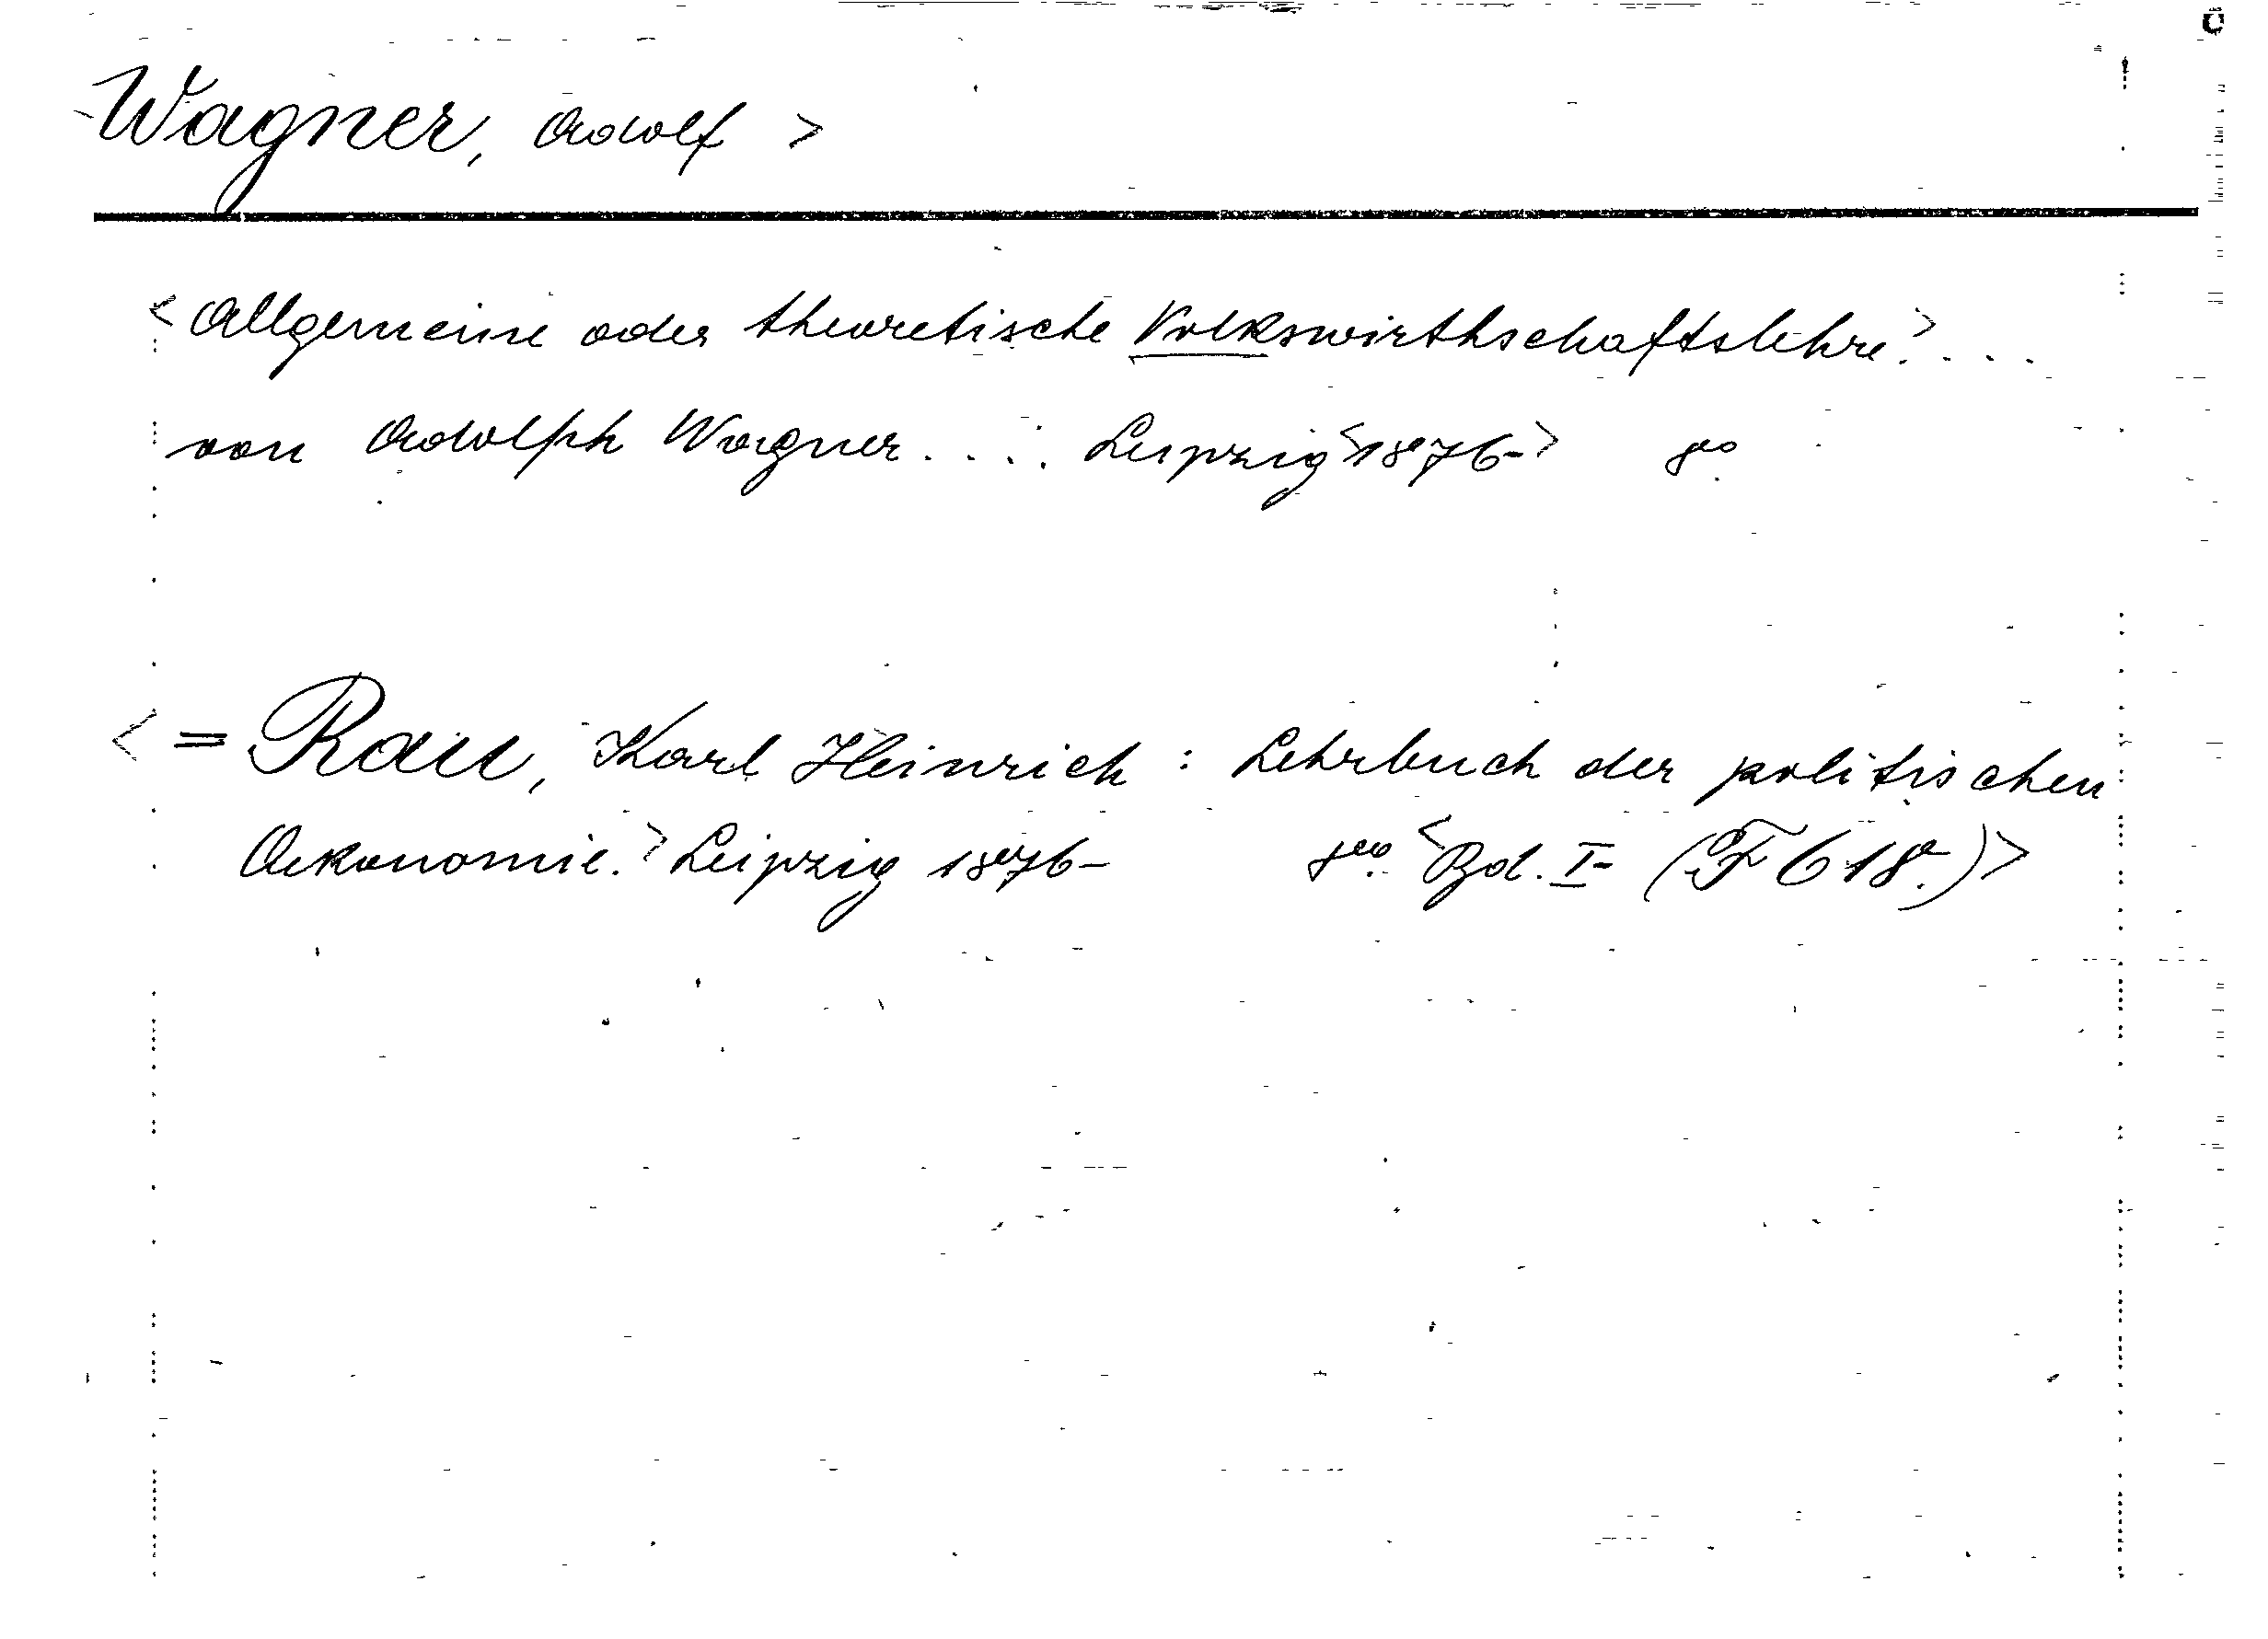 Wagner, Adolf >
< Allgemeine oder theoretische Volkswirthschaftslehre.> ...
von Adolph Wagner.... Leipzig <1876-> 8°.
< = Rau, Karl Heinrich : Lehrbuch der politischen
Oekonomie.> Leipzig 1876- 8°. < Bd. I- (F 618.) >